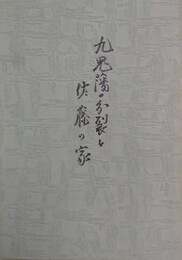 九鬼藩の分裂と
佐藤の家